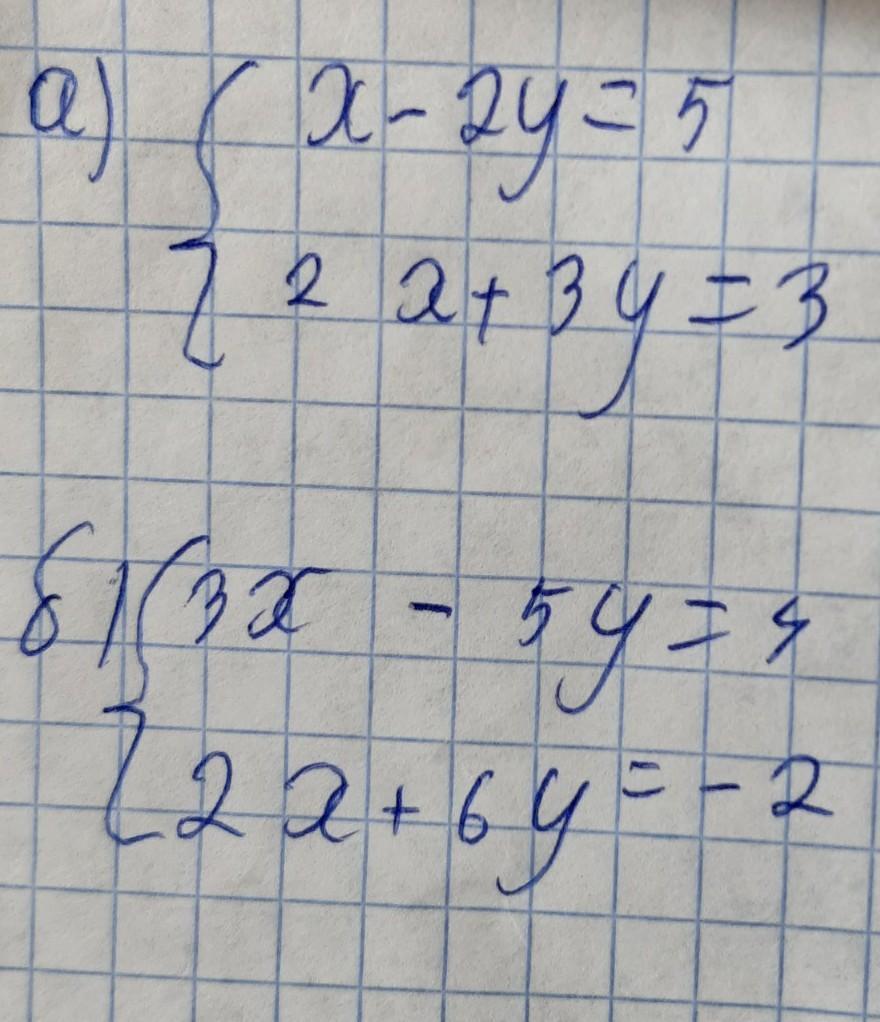 а) { x - 2y = 5
2x + 3y = 3
б) { 3x - 5y = 4
2x + 6y = -2